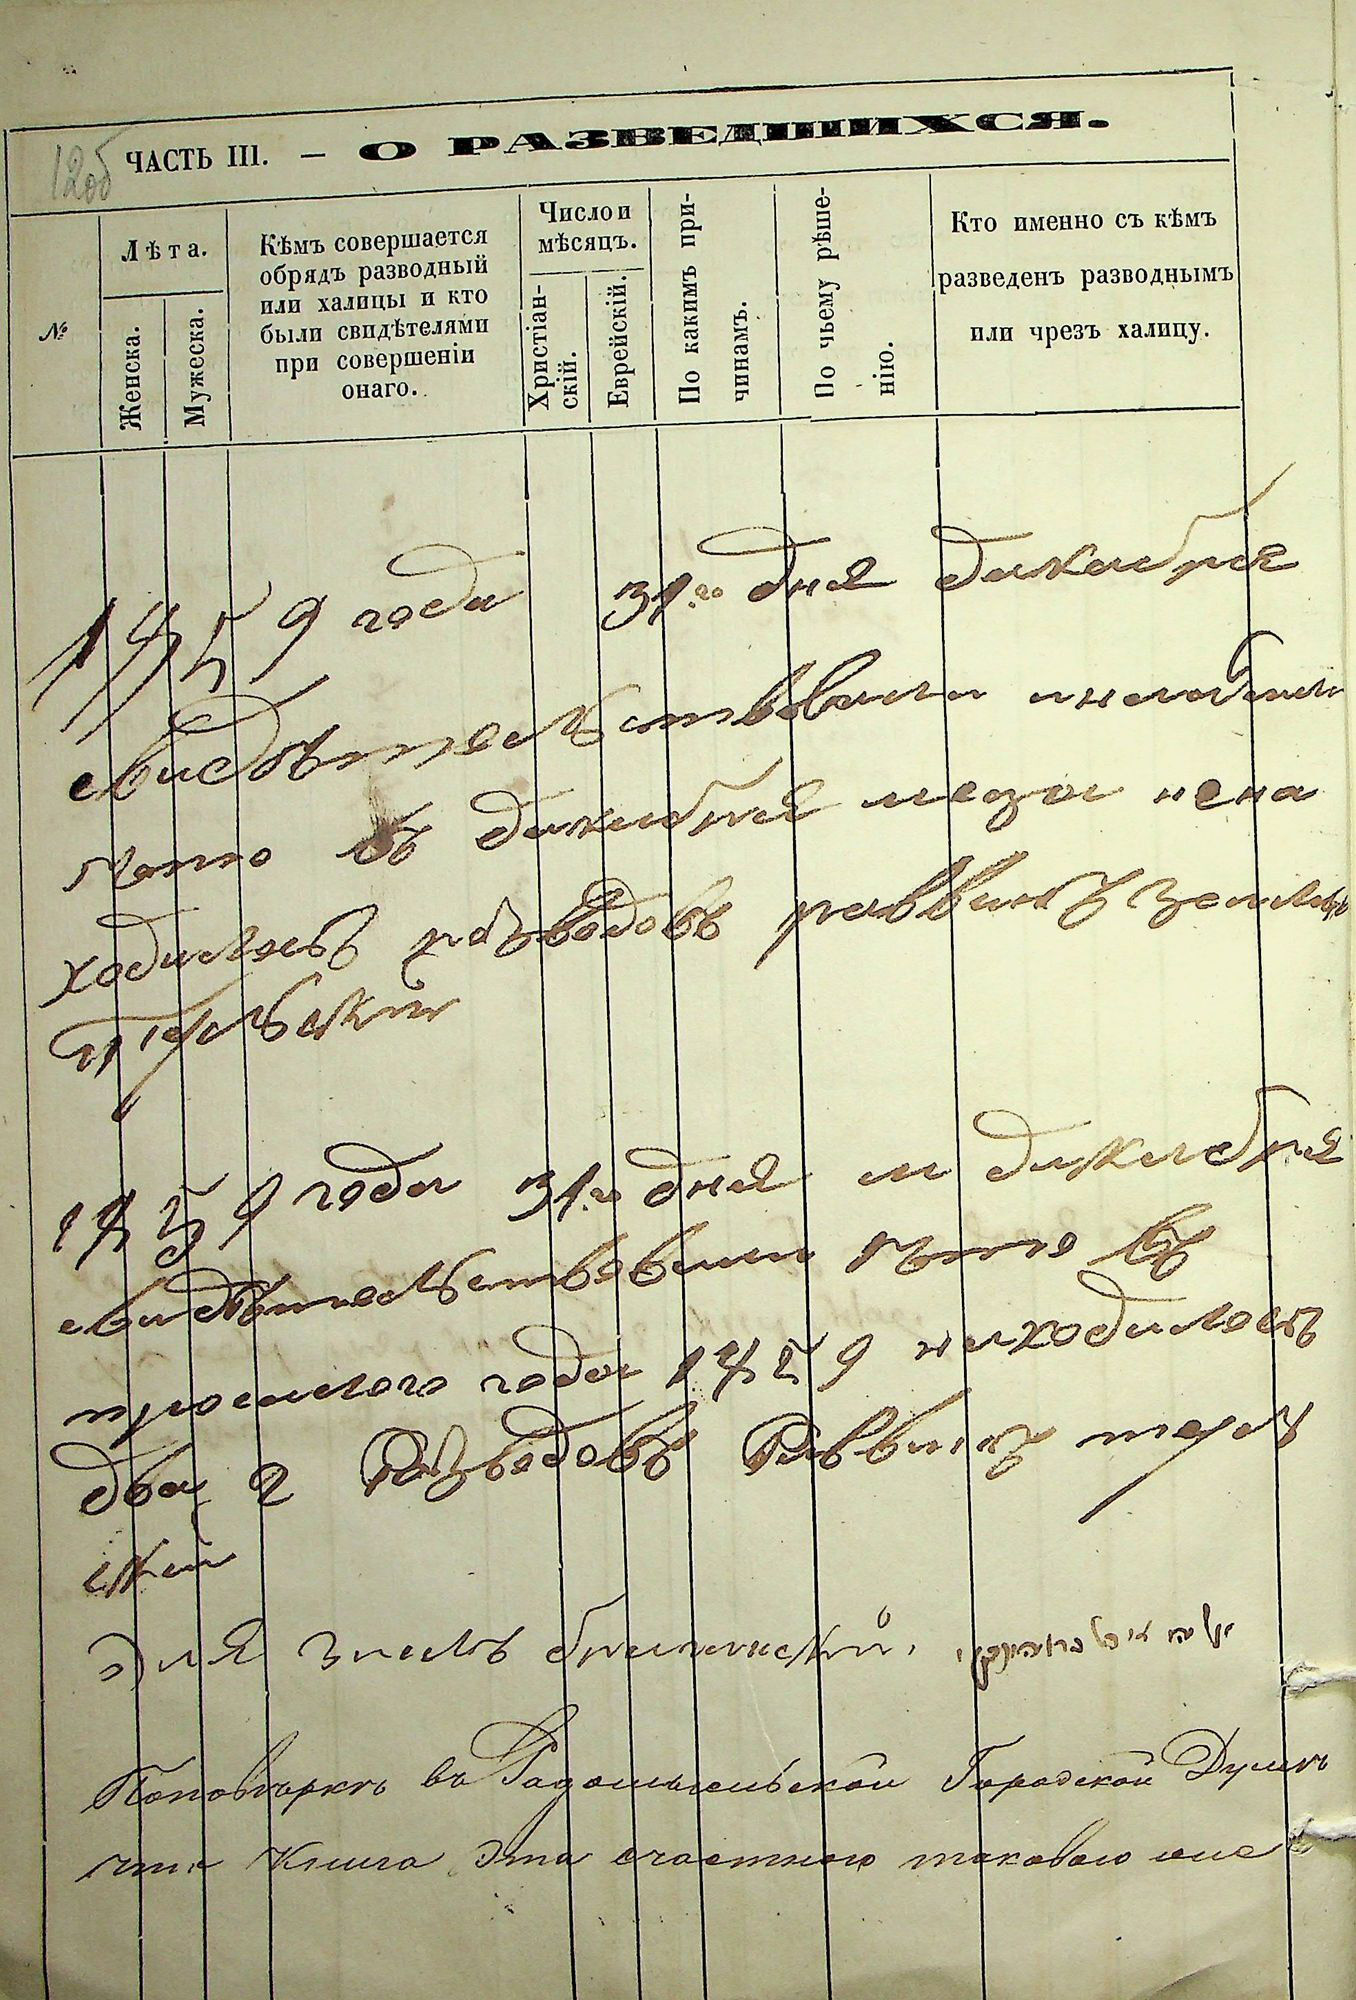 12об
ЧАСТЬ III. — О РАЗВЕДШИХСЯ.
№
Лѣта.
Женска.
Мужеска.
Кѣмъ совершается
обрядъ разводный
или халицы и кто
были свидѣтелями
при совершеніи
онаго.
Число и
мѣсяцъ.
Христіан-
скій.
Еврейскій.
По какимъ при-
чинамъ.
По чьему рѣше-
нію.
Кто именно съ кѣмъ
разведенъ разводнымъ
или чрезъ халицу.
1859 года 31го дня декабря
свидѣтельствовали
что въ декабря нена
ходилось розводовъ раввинъ
1859 года 31го дня м декабря
свидѣтельствовали что въ
прошлого года 1859 находилось
два 2 Розводовъ Раввинъ
ский
Поповѣрке въ Радомысльской Городской Думѣ
что Книга эта счастною таковою